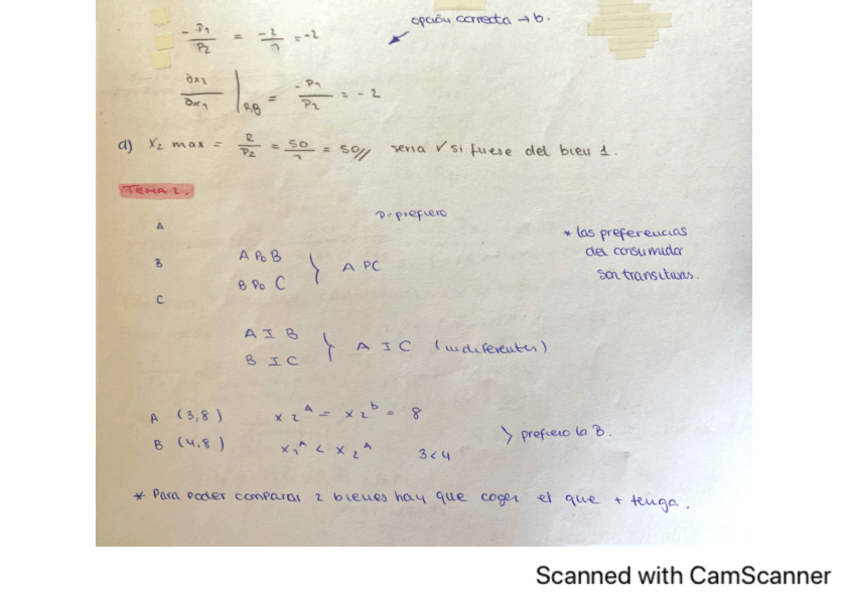 opción correcta → b.
-P1/P2 = -2/1 = -2
∂x2/∂x1 |RB = -P1/P2 = -2
d) X2 max = R/P2 = 50/1 = 50// seria √ si fuese del bien 1.
TEMA 2.
P = prefiero
A
B
C
* las preferencias
del consumidor
son transitivas.
A Po B
B Po C } A PC
A I B
B I C } A I C (indiferentes)
A (3,8) x2^A = x2^b = 8
B (4,8) x1^A < x2^A 3<4 } prefiero la B.
* Para poder comparar 2 bienes hay que coger el que + tenga.
Scanned with CamScanner